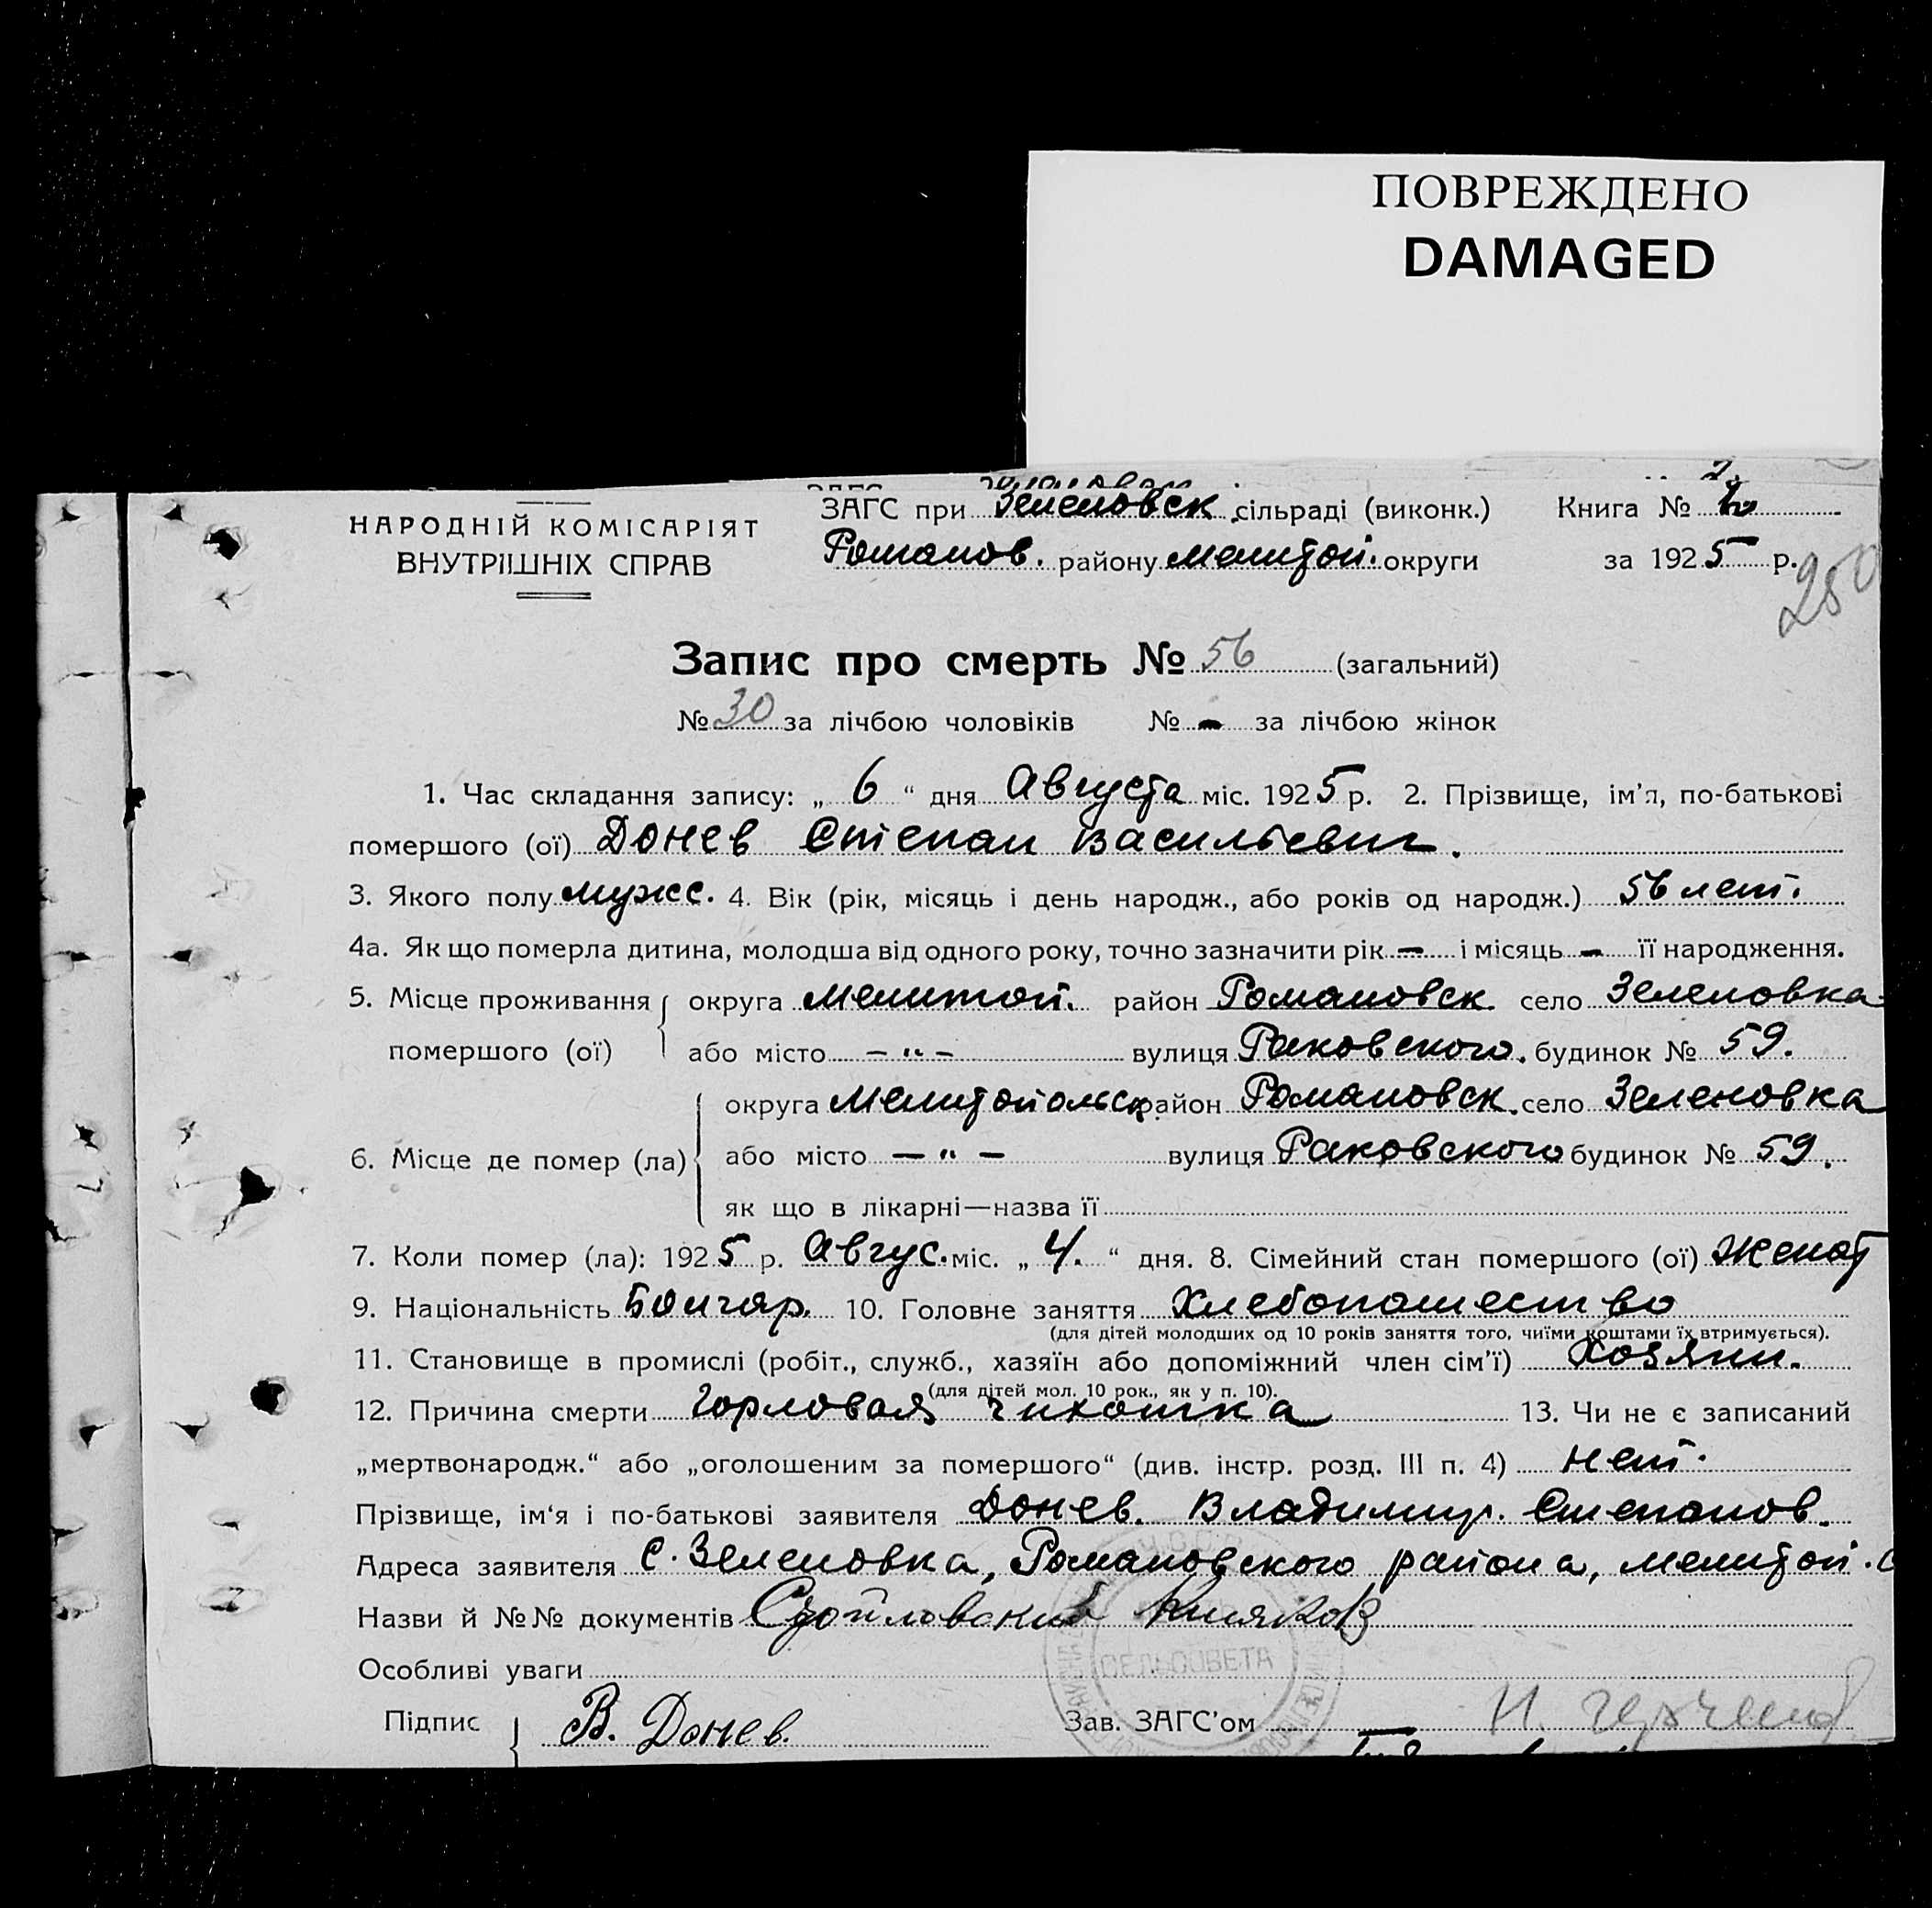 ПОВРЕЖДЕНО
DAMAGED
НАРОДНІЙ КОМІСАРІЯТ
ВНУТРІШНІХ СПРАВ
ЗАГС при Зеленовск. сільраді (виконк.) Книга №
Романов. району Мелитоп. округи за 1925 р.
250
Запис про смерть № 56 (загальний)
№ 30 за лічбою чоловіків № - за лічбою жінок
1. Час складання запису: „ 6 “ дня Августа міс. 1925 р. 2. Прізвище, ім’я, по-батькові
помершого (ої) Донев Степан Васильевич.
3. Якого полу мужс. 4. Вік (рік, місяць і день народж., або років од народж.) 56 лет.
4а. Як що померла дитина, молодша від одного року, точно зазначити рік — і місяць — її народження.
5. Місце проживання помершого (ої) округа Мелитоп. район Романовск село Зеленовка
або місто — „ — вулиця Раковского. будинок № 59.
6. Місце де помер (ла) округа Мелитопольск район Романовск. село Зеленовка
або місто — „ — вулиця Раковского будинок № 59.
як що в лікарні—назва її
7. Коли помер (ла): 1925 р. Авгус. міс. „ 4. “ дня. 8. Сімейний стан помершого (ої) Женат
9. Національність Болгар. 10. Головне заняття Хлебопашество
(для дітей молодших од 10 років заняття того, чиїми коштами їх втримується).
11. Становище в промислі (робіт., служб., хазяїн або допоміжний член сім’ї) Хозяин.
(для дітей мол. 10 рок., як у п. 10).
12. Причина смерти Горловая Чихотка 13. Чи не є записаний
„мертвонародж.“ або „оголошеним за помершого“ (див. інстр. розд. III п. 4) Нет.
Прізвище, ім‘я і по-батькові заявителя Донев. Владимир. Степанов.
Адреса заявителя С. Зеленовка, Романовского района, Мелитоп.
Назви й №№ документів
СЕЛЬСОВЕТА
Особливі уваги
Підпис В. Донев. Зав. ЗАГС’ом